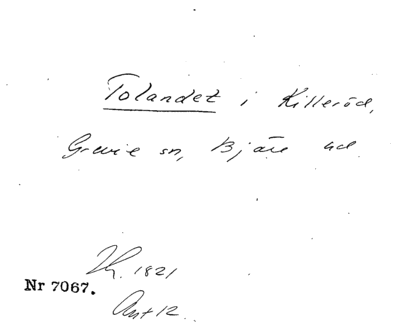 Tolandet i Killeröd,
Grevie sn, Bjäre hd.
Th. 1821
Nr 7067.
Ant 12.